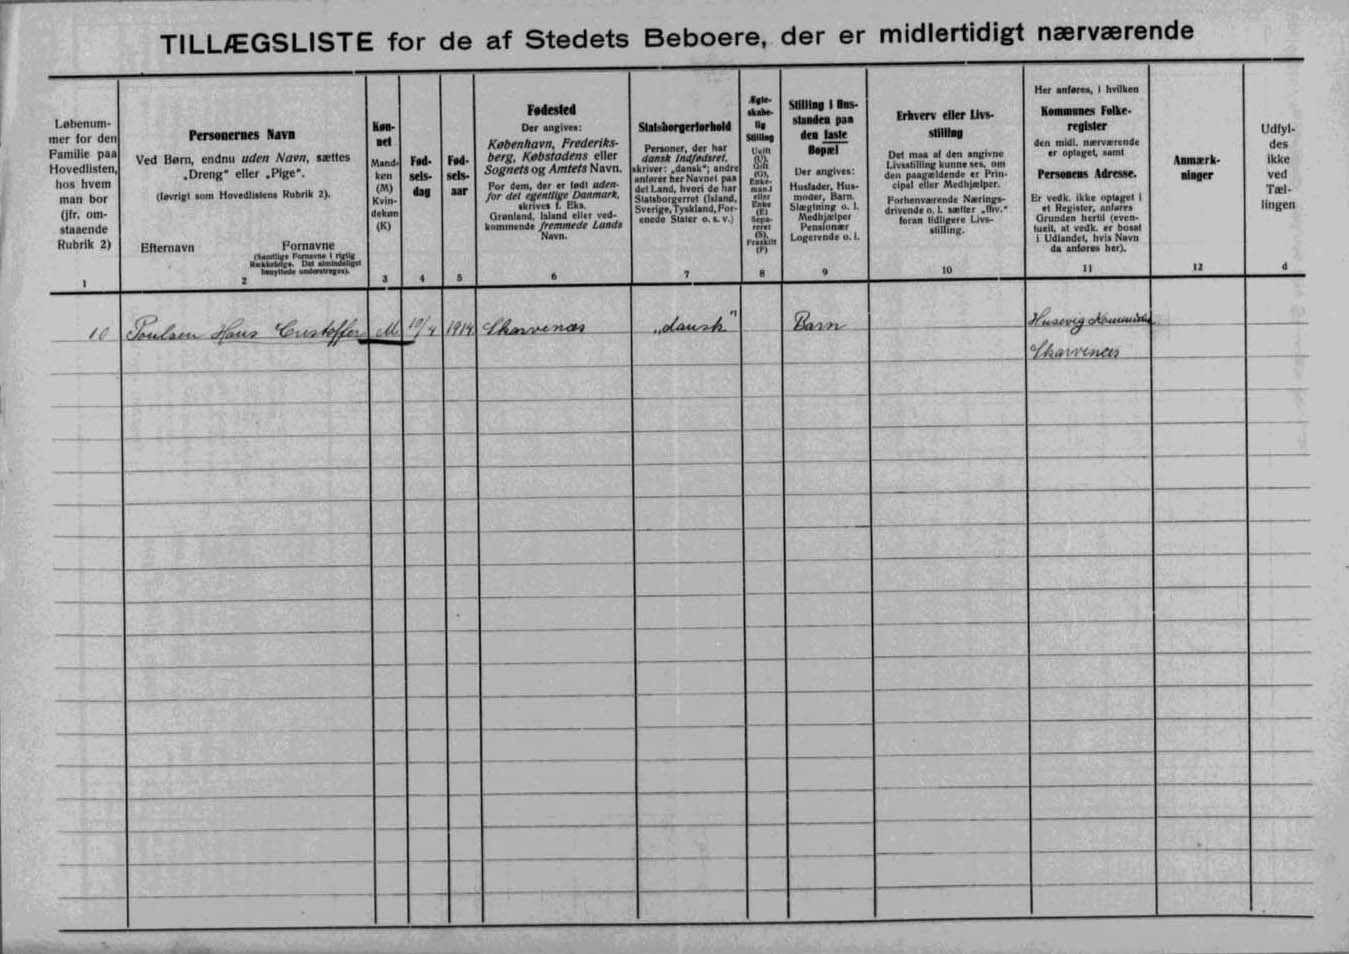 TILLÆGSLISTE for de af Stedets Beboere, der er midlertidigt nærværende
Løbenum-
mer for den
Familie paa
Hovedlisten,
hos hvem
man bor
(jfr. om-
staaende
Rubrik 2)
1
Personernes Navn
Ved Børn, endnu uden Navn, sættes
„Dreng“ eller „Pige“.
(Iøvrigt som Hovedlistens Rubrik 2).
Efternavn
Fornavne
(Samtlige Fornavne i rigtig
Rækkefølge. Det almindeligst
benyttede understreges).
2
Køn-
net
Mand-
køn
(M)
Kvin-
dekøn
(K)
3
Fød-
sels-
dag
4
Fød-
sels-
aar
5
Fødested
Der angives:
København, Frederiks-
berg, Købstadens eller
Sognets og Amtets Navn.
For dem, der er født uden-
for det egentlige Danmark,
skrives f. Eks.
Grønland, Island eller ved-
kommende fremmede Lands
Navn.
6
Statsborgerforhold
Personer, der har
dansk Indfødsret,
skriver: „dansk“; andre
anfører her Navnet paa
det Land, hvori de har
Statsborgerret (Island,
Sverige, Tyskland, For-
enede Stater o. s. v.)
7
Ægte-
skabe-
lig
Stilling
Ugift
(U),
Gift
(G),
Enke-
mand
eller
Enke
(E)
Sepa-
reret
(S),
Fraskilt
(F)
8
Stilling i Hus-
standen paa
den faste
Bopæl
Der angives:
Husfader, Hus-
moder, Barn,
Slægtning o. l.
Medhjælper
Pensionær
Logerende o. l.
9
Erhverv eller Livs-
stilling
Det maa af den angivne
Livsstilling kunne ses, om
den paagældende er Prin-
cipal eller Medhjælper.
Forhenværende Nærings-
drivende o. l. sætter „fhv.“
foran tidligere Livs-
stilling.
10
Her anføres, i hvilken
Kommunes Folke-
register
den midl. nærværende
er optaget, samt
Personens Adresse.
Er vedk. ikke optaget i
et Register, anføres
Grunden hertil (even-
tuelt, at vedk. er bosat
i Udlandet, hvis Navn
da anføres her).
11
Anmærk-
ninger
12
Udfyl-
des
ikke
ved
Tæl-
lingen
d
10 Poulsen Hans Cristoffer M 10/4 1914 Skarvenæs „dansk“ Barn Husevig
Skarvenæs